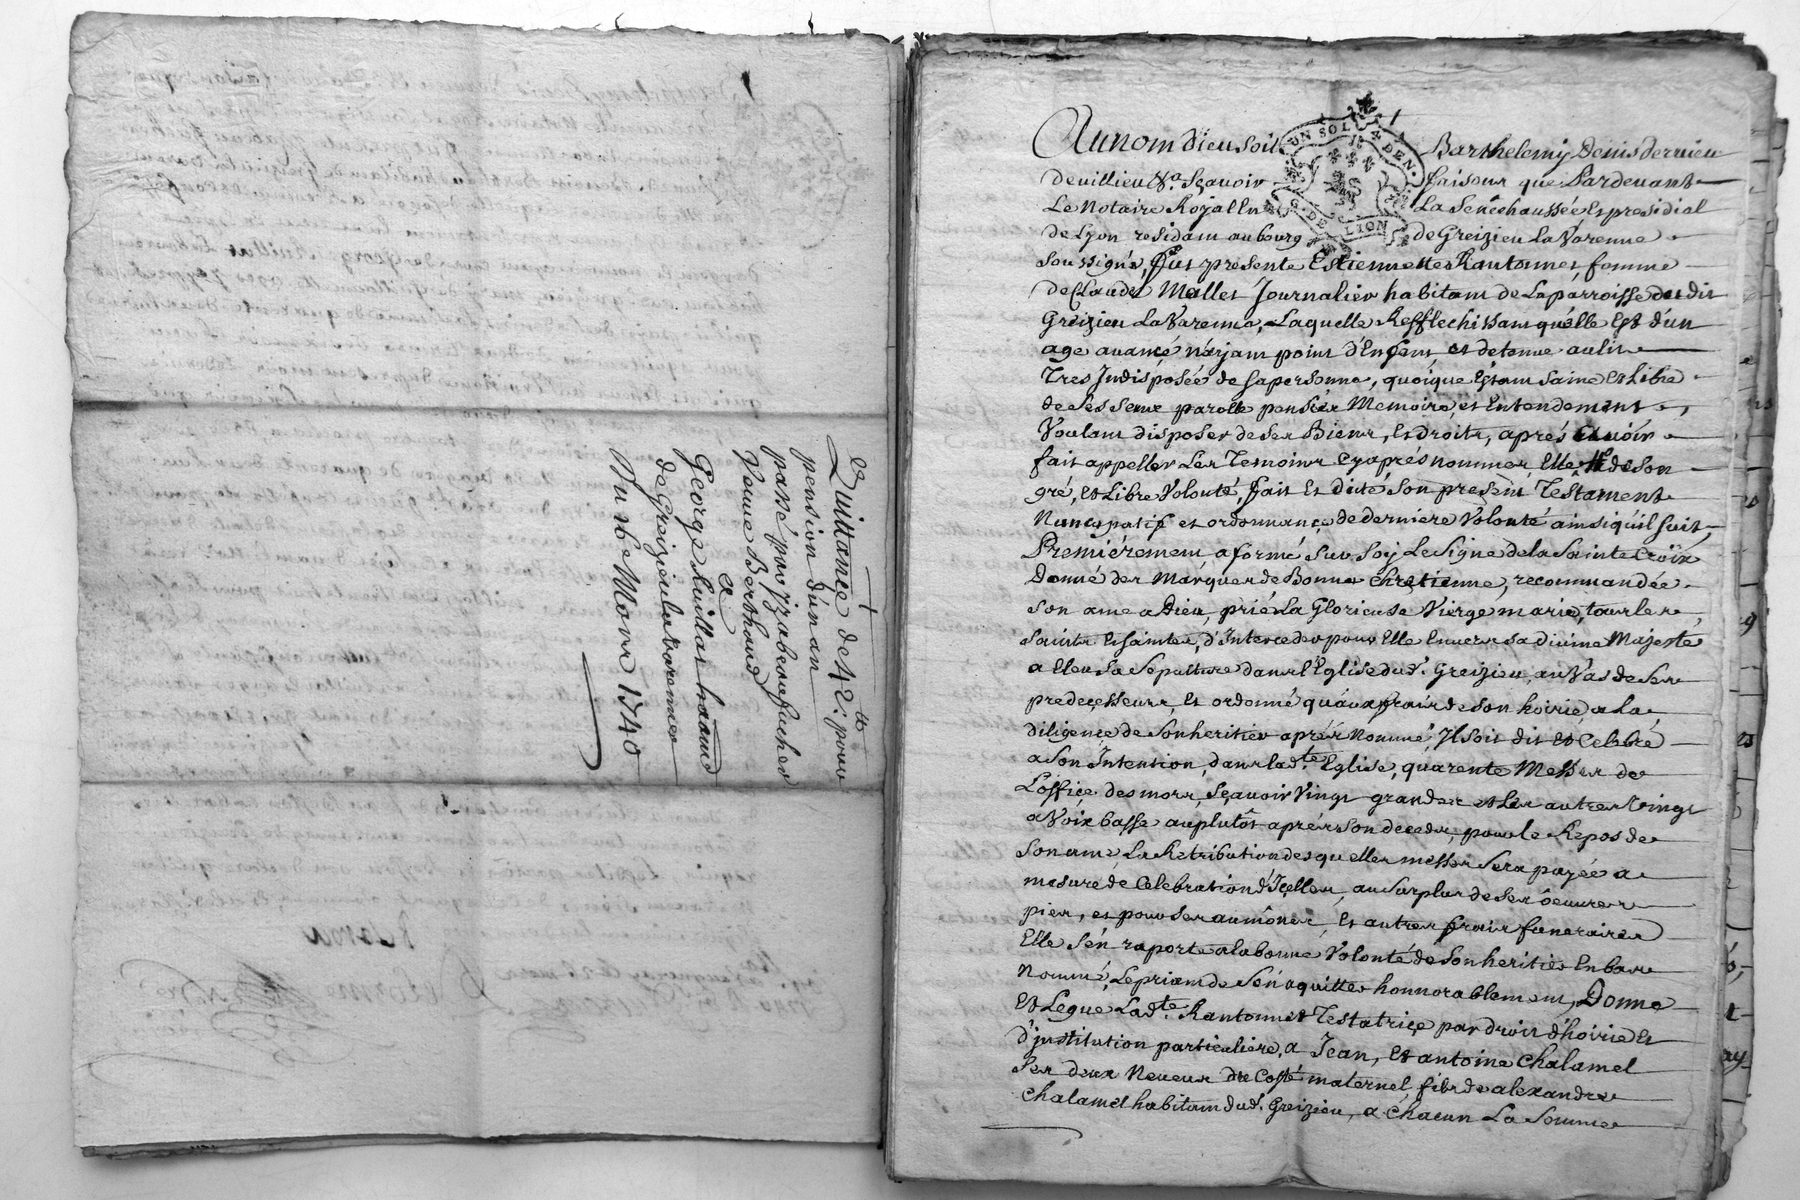 Quittance de 42 ₶: pour
pension d'un an
passé par yzabeau fucher
Veuve Berthaud
a
George Ruillat
de Greizieu la varenne
Du 26e Mars 1740
Au nom dieu soit Barthelemy Denis dervieu
de villieu &a. Sçavoir faisons que Pardevant
Le Notaire Royal En La Senechaussée Et presidial
de Lyon residant au bourg de Greizieu La Varenne
UN SOL 4 DEN.
G. DE LION
soussigné, fut presente Estiennette Rantonnet femme
de Claude Mallet Journalier habitant de La parroisse dudit
Greizieu La Varenne, Laquelle Refflechissant qu'elle Est d'un
age avancé n'ayant point d'Enfant et detenue au lit
Tres Indisposée de sa personne, quoique Estant saine Et Libre
de ses sens parolle pensée Memoire et Entendement,
Voulant disposer de ses Biens, Et droits, aprés avoir
fait appeller Les Temoins Cy aprés nommer Elle de son
gré, Et Libre Volonté, fait Et dicté son present Testament
Nuncupatif et ordonnance de derniére Volonté ainsi qu'il suit,
Premiérement a formé sur soy Le Signe de la Sainte Croix
Donné des Marques de Bonne Chretienne, recommandée
son ame a Dieu, prié La Glorieuse Vierge marie, tous les
saints Et saintes, d'Interceder pour Elle Envers sa divine Majesté
a Eleu sa Sepulture dans l'Eglise dud.t Greizieu, au Vas de ses
predecesseurs, Et ordonné qu'aux frais de son hoirie, a La
diligence de son heritier aprés Nommé, Il soit dit Et Celebré
a son Intention, dans lad.te Eglise, quarente Messes de
L'office des mors, Sçavoir Vingt grandes et Les autres Vingt
a Voix basse au plutôt aprés son decedz, pour le Repos de
son ame, La Retribution desquelles messes sera payée a
mesure de Celebration d'Icelles, au surplus de ses oeuvres
pies, et pour ses aumônes, Et autres frais funeraires
Elle s'en raporte a la bonne Volonté de son heritier En bas
Nommé, Le priant de s'en aquitter honnorablement, Donne
Et Legue Lad.te Rantonnet Testatrice par droit d'hoirie Et
d'institution particuliére, a Jean, Et antoine Chalamel
ses deux Neveux du Costé maternel fils de alexandre
Chalamel habitant dud.t Greizieu, a Chacun La somme